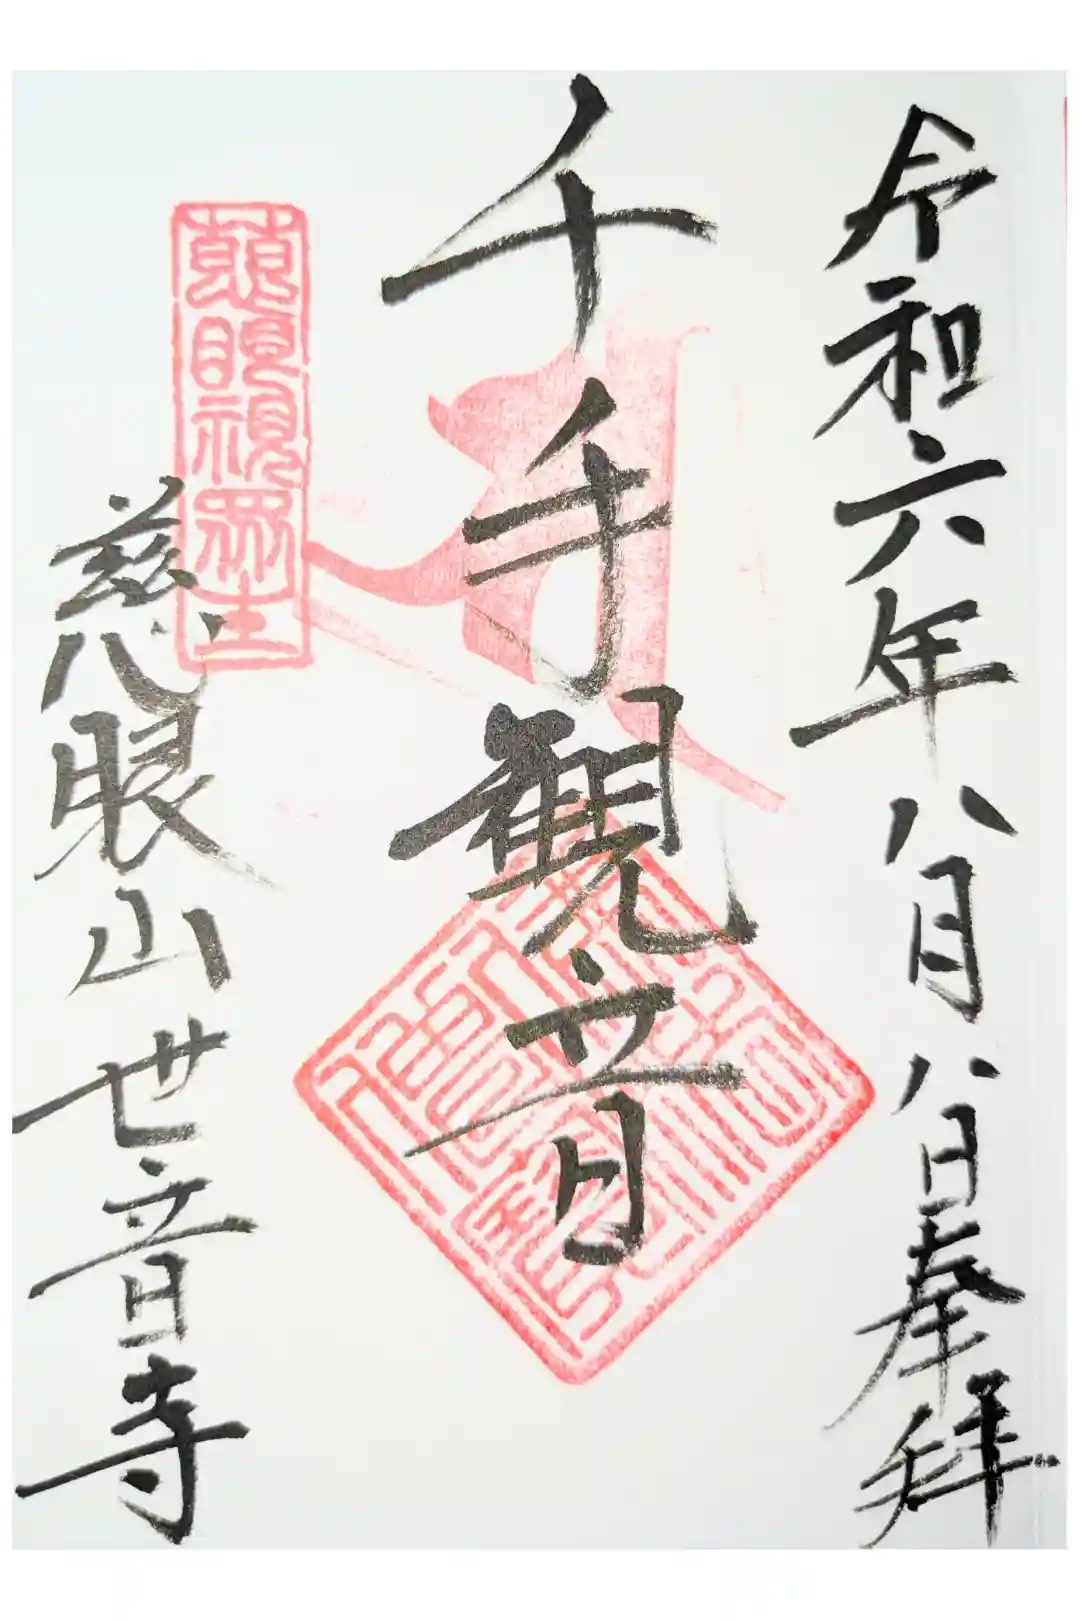 令和六年八月八日奉拝
千手観音
慈眼視衆生
慈眼山世音寺